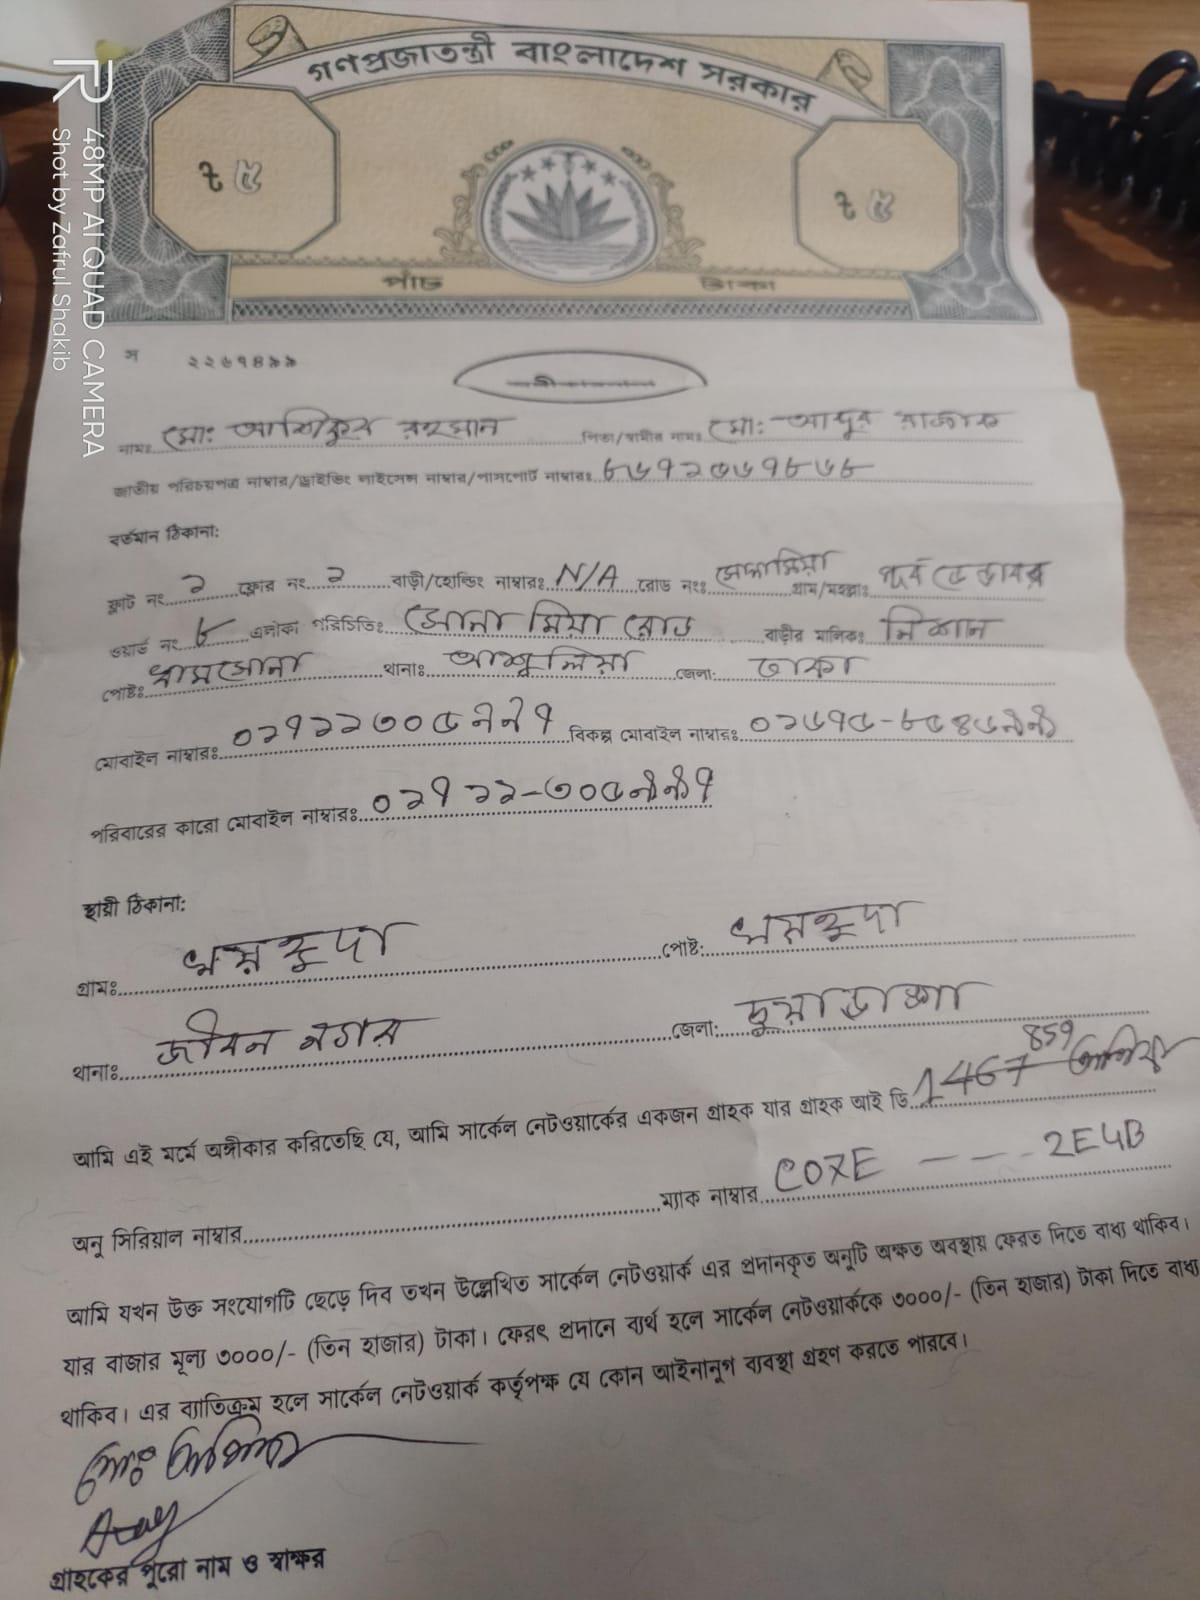 গণপ্রজাতন্ত্রী বাংলাদেশ সরকার
৳ ৫ ৳ ৫
পাঁচ টাকা
48MP AI QUAD CAMERA
Shot by Zafrul Shakib
স ২২৬৭৪৯৯
নামঃ মোঃ আশিকুর রহমান পিতা/স্বামীর নামঃ মোঃ আব্দুর রাজ্জাক
জাতীয় পরিচয়পত্র নাম্বার/ড্রাইভিং লাইসেন্স নাম্বার/পাসপোর্ট নাম্বারঃ
বর্তমান ঠিকানা:
ফ্লাট নং ২ ফ্লোর নং ২ বাড়ী/হোল্ডিং নাম্বারঃ N/A রোড নংঃ সোনামিয়া গ্রাম/মহল্লাঃ পূর্ব
ওয়ার্ড নং ৮ এলাকা পরিচিতিঃ সোনা মিয়া রোড বাড়ীর মালিকঃ নিশান
পোষ্টঃ ধামসোনা থানাঃ আশুলিয়া জেলা: ঢাকা
মোবাইল নাম্বারঃ ০১৭১১৩০৫৯৯৭ বিকল্প মোবাইল নাম্বারঃ
পরিবারের কারো মোবাইল নাম্বারঃ ০১৭১১-৩০৫৯৯৭
স্থায়ী ঠিকানা:
গ্রামঃ পোষ্ট:
থানাঃ জীবন নগর জেলা: চুয়াডাঙ্গা
আমি এই মর্মে অঙ্গীকার করিতেছি যে, আমি সার্কেল নেটওয়ার্কের একজন গ্রাহক যার গ্রাহক আই ডি 1467 859
অনু সিরিয়াল নাম্বার ম্যাক নাম্বার C07E - - - 2E4B
আমি যখন উক্ত সংযোগটি ছেড়ে দিব তখন উল্লেখিত সার্কেল নেটওয়ার্ক এর প্রদানকৃত অনুটি অক্ষত অবস্থায় ফেরত দিতে বাধ্য থাকিব।
যার বাজার মূল্য ৩০০০/- (তিন হাজার) টাকা। ফেরৎ প্রদানে ব্যর্থ হলে সার্কেল নেটওয়ার্ককে ৩০০০/- (তিন হাজার) টাকা দিতে বাধ্য
থাকিব। এর ব্যাতিক্রম হলে সার্কেল নেটওয়ার্ক কর্তৃপক্ষ যে কোন আইনানুগ ব্যবস্থা গ্রহণ করতে পারবে।
মোঃ
গ্রাহকের পুরো নাম ও স্বাক্ষর